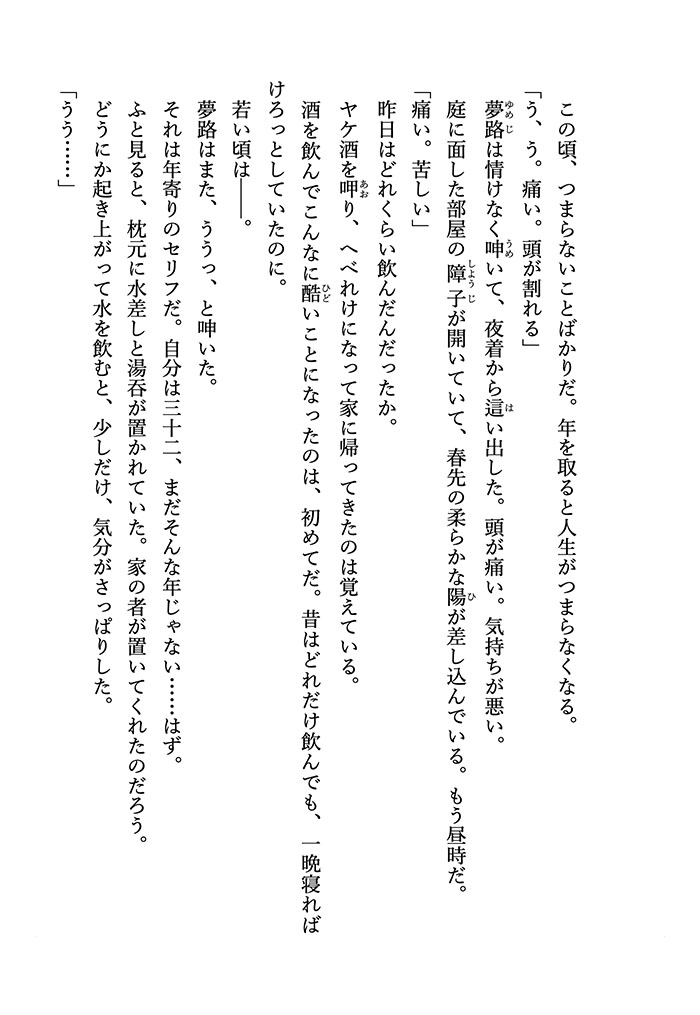 この頃、つまらないことばかりだ。年を取ると人生がつまらなくなる。
「う、う。痛い。頭が割れる」
夢路は情けなく呻いて、夜着から這い出した。頭が痛い。気持ちが悪い。
庭に面した部屋の障子が開いていて、春先の柔らかな陽が差し込んでいる。もう昼時だ。
「痛い。苦しい」
昨日はどれくらい飲んだんだったか。
ヤケ酒を呷り、へべれけになって家に帰ってきたのは覚えている。
酒を飲んでこんなに酷いことになったのは、初めてだ。昔はどれだけ飲んでも、一晩寝れば
けろっとしていたのに。
若い頃は――。
夢路はまた、ううっ、と呻いた。
それは年寄りのセリフだ。自分は三十二、まだそんな年じゃない……はず。
ふと見ると、枕元に水差しと湯呑が置かれていた。家の者が置いてくれたのだろう。
どうにか起き上がって水を飲むと、少しだけ、気分がさっぱりした。
「うう……」